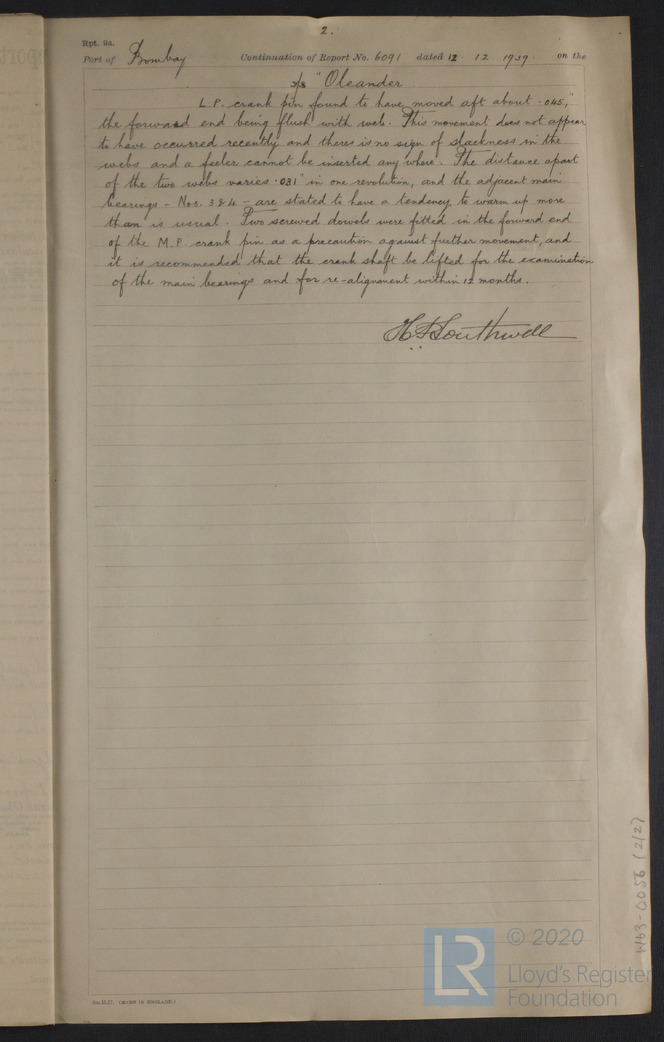 2.
Rpt. 9a.
Port of Bombay Continuation of Report No. 6091 dated 12 12 1939 on the
"Oleander
L.P. crank pin found to have moved aft about .045",
the forward end being flush with web. This movement does not appear
to have occurred recently and there is no sign of slackness in the
webs and a feeler cannot be inserted any where. The distance apart
of the two webs varies .031" in one revolution, and the adjacent main
bearings - Nos. 3 & 4 - are stated to have a tendency to warm up more
than is usual. Two screwed dowels were fitted in the forward end
of the M.P. crank pin as a precaution against further movement, and
it is recommended that the crank shaft be lifted for the examination
of the main bearings and for re-alignment within 12 months.
Southwell
(MADE IN ENGLAND.)
W63-0056 (2/2)
LR © 2020
Lloyd's Register
Foundation